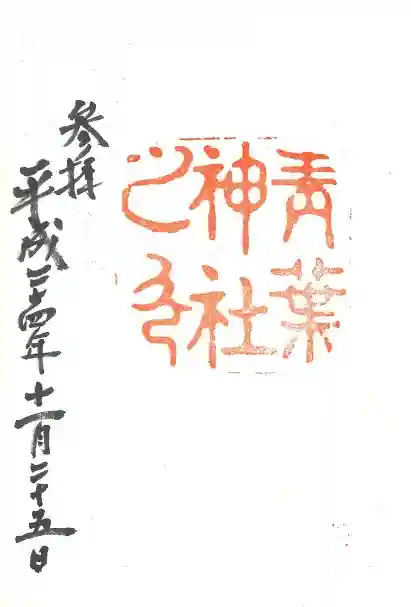 青葉
神社
之印
参拝
平成二十四年十一月二十五日